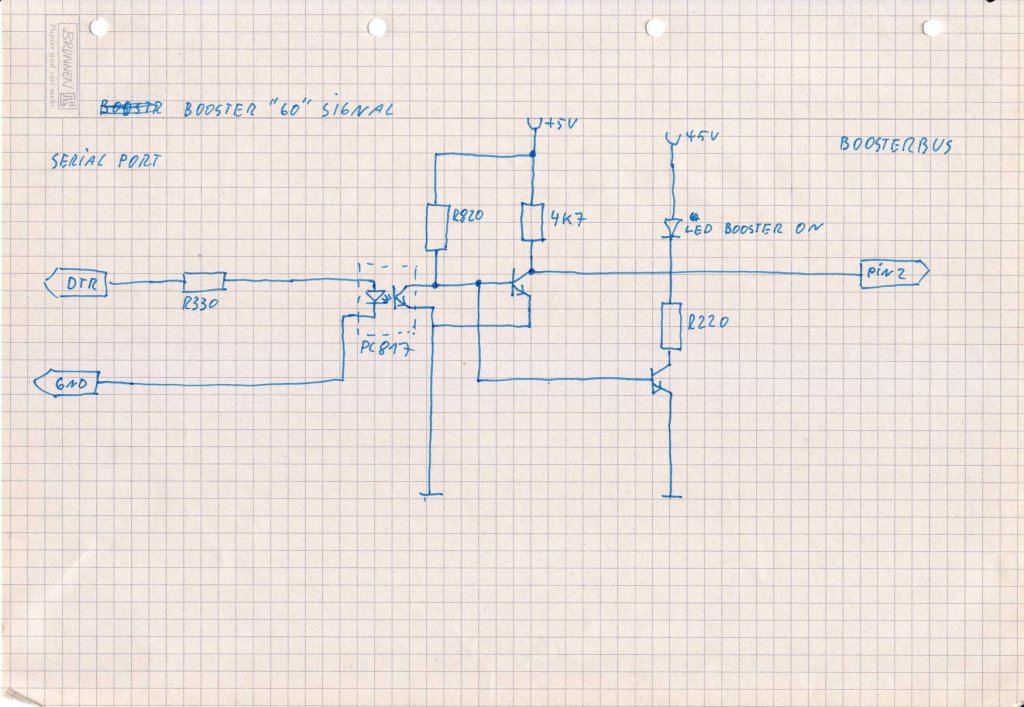 BRUNNEN
BOOSTER "GO" SIGNAL
SERIAL PORT
BOOSTERBUS
+5V
+5V
R820
4K7
LED BOOSTER ON
DTR
R330
PIN 2
PC817
R220
GND